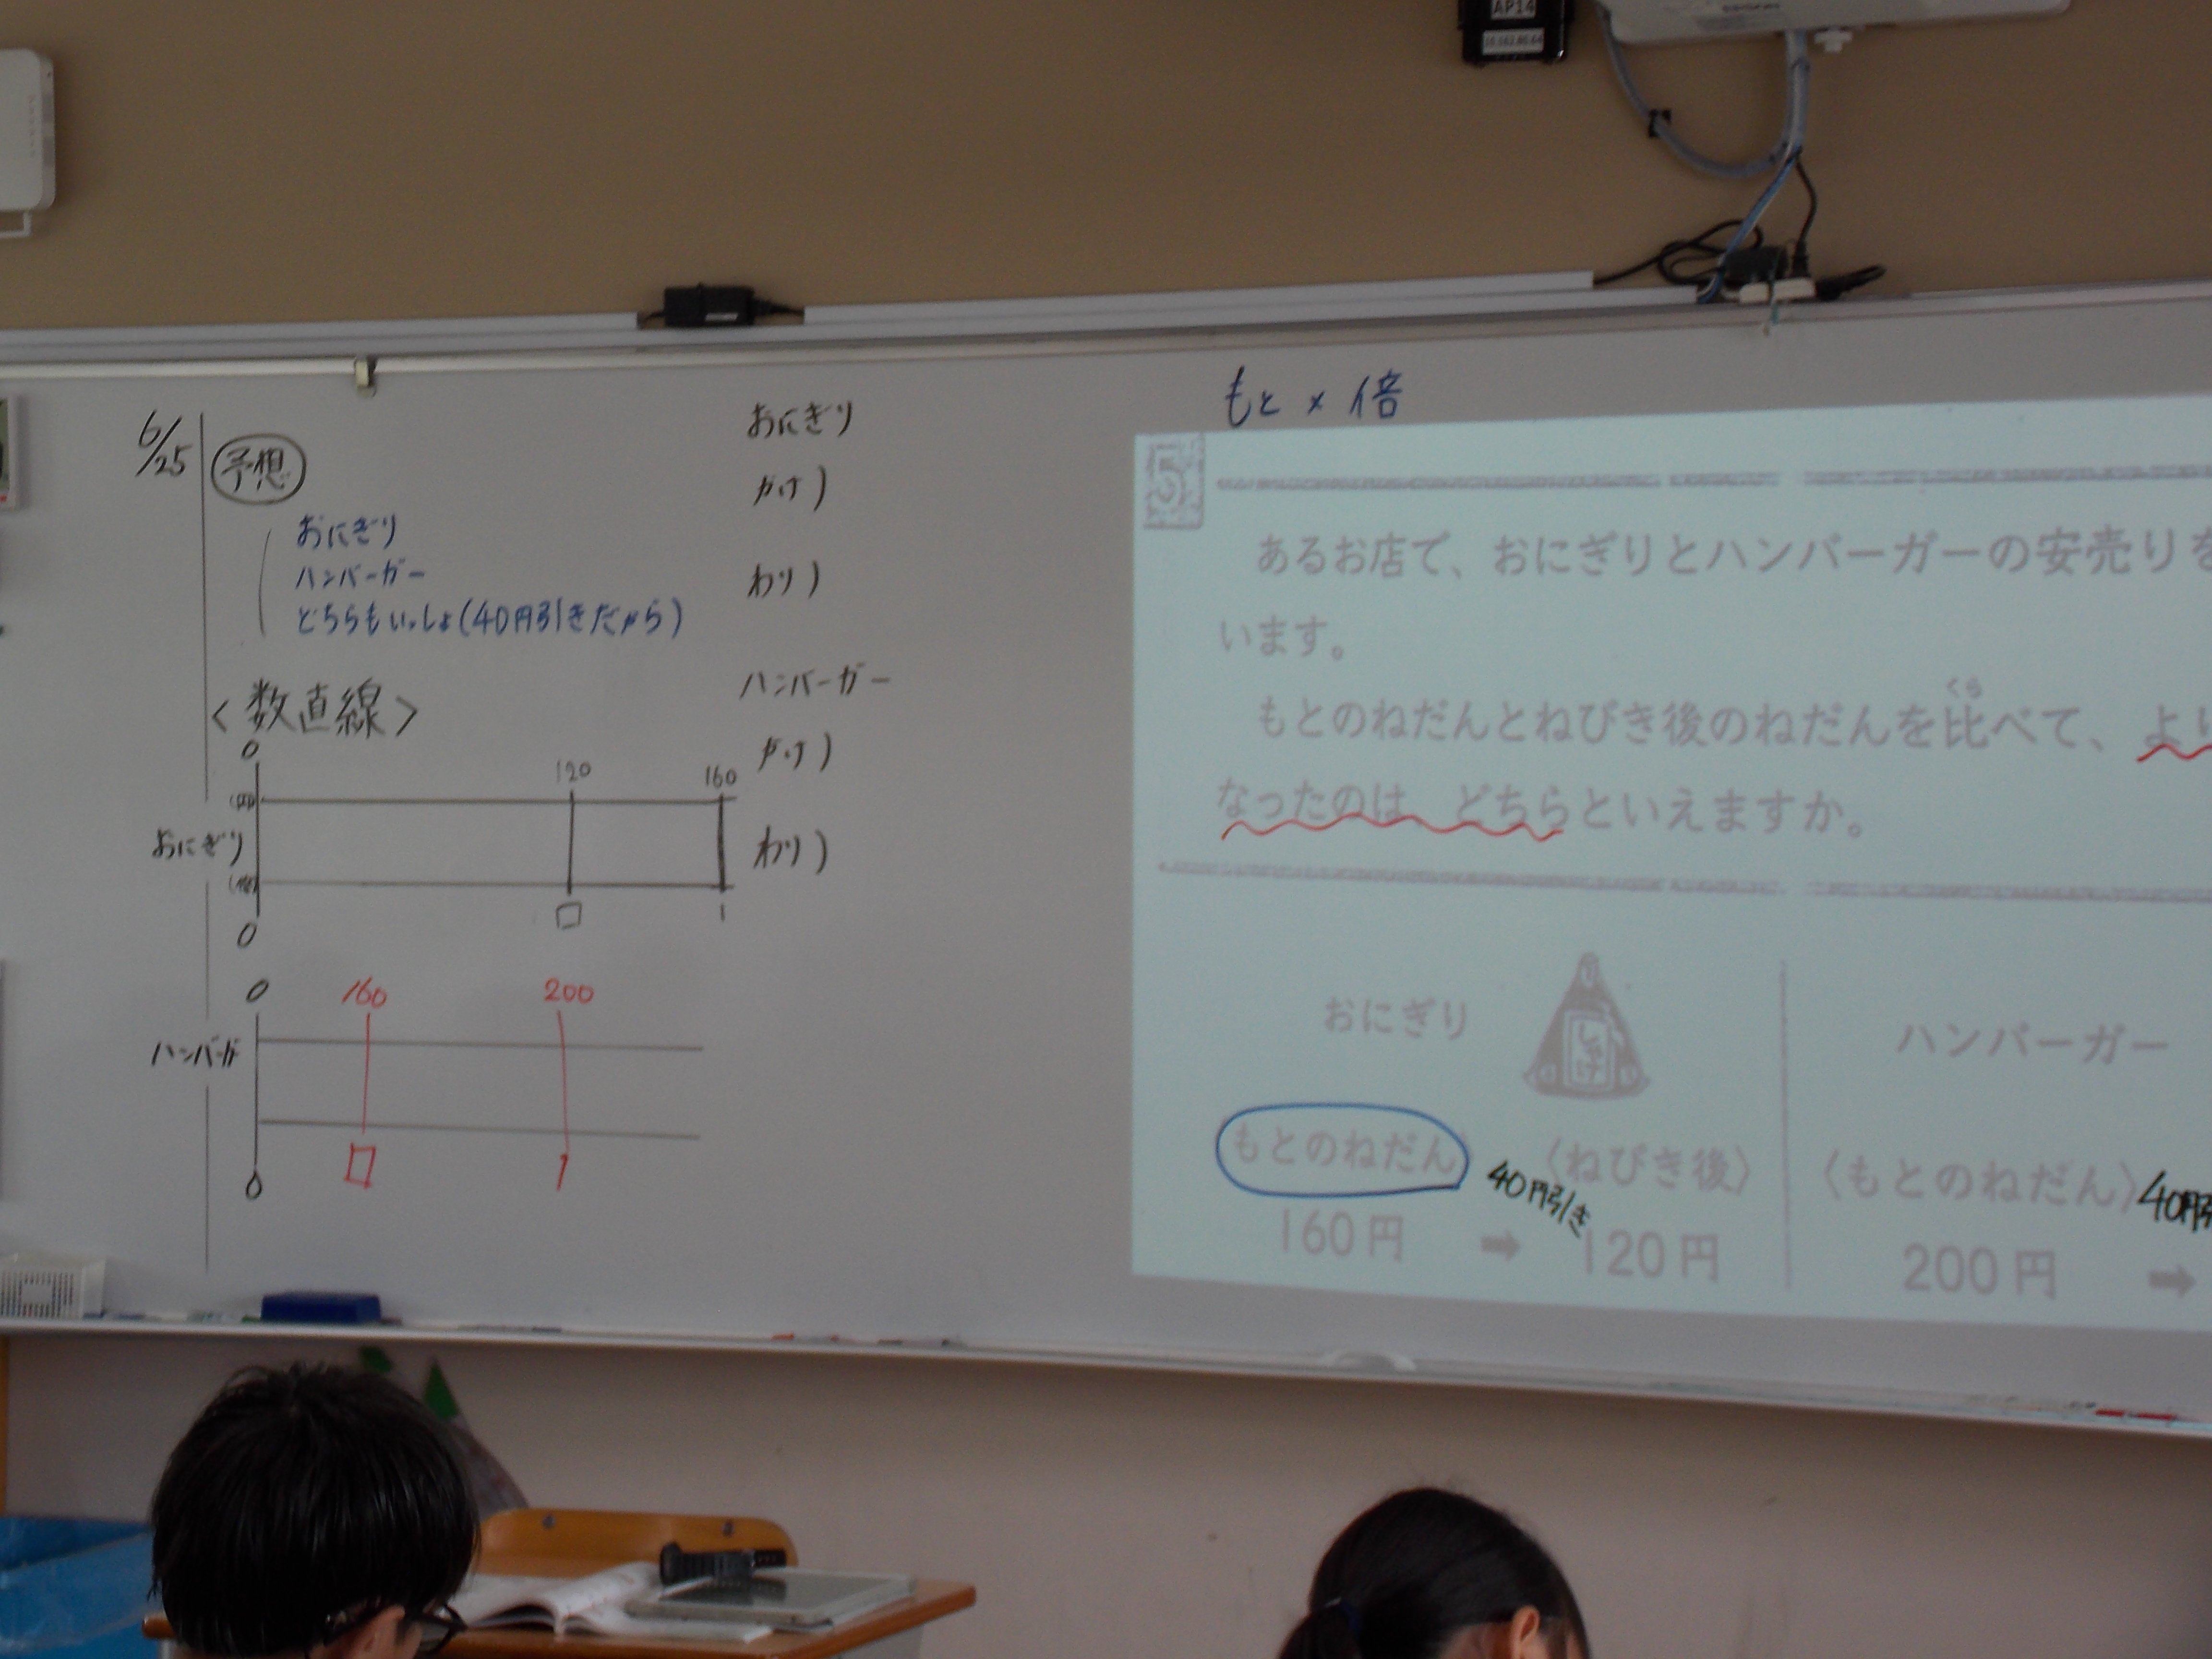 AP14
6/25
予想
おにぎり
ハンバーガー
どちらもいっしょ(40円引きだから)
<数直線>
0 120 160
(円)
おにぎり
(倍)
0 □ 1
0 160 200
ハンバーガ
0 □ 1
おにぎり
かけ)
わり)
ハンバーガー
かけ)
わり)
もと×倍
5
あるお店で、おにぎりとハンバーガーの安売りを
います。
くら
もとのねだんとねびき後のねだんを比べて、より
なったのは、どちらといえますか。
おにぎり
しゃけ
ハンバーガー
もとのねだん 40円引き 〈ねびき後〉
160円 ➡ 120円
〈もとのねだん〉 40円引
200円 ➡